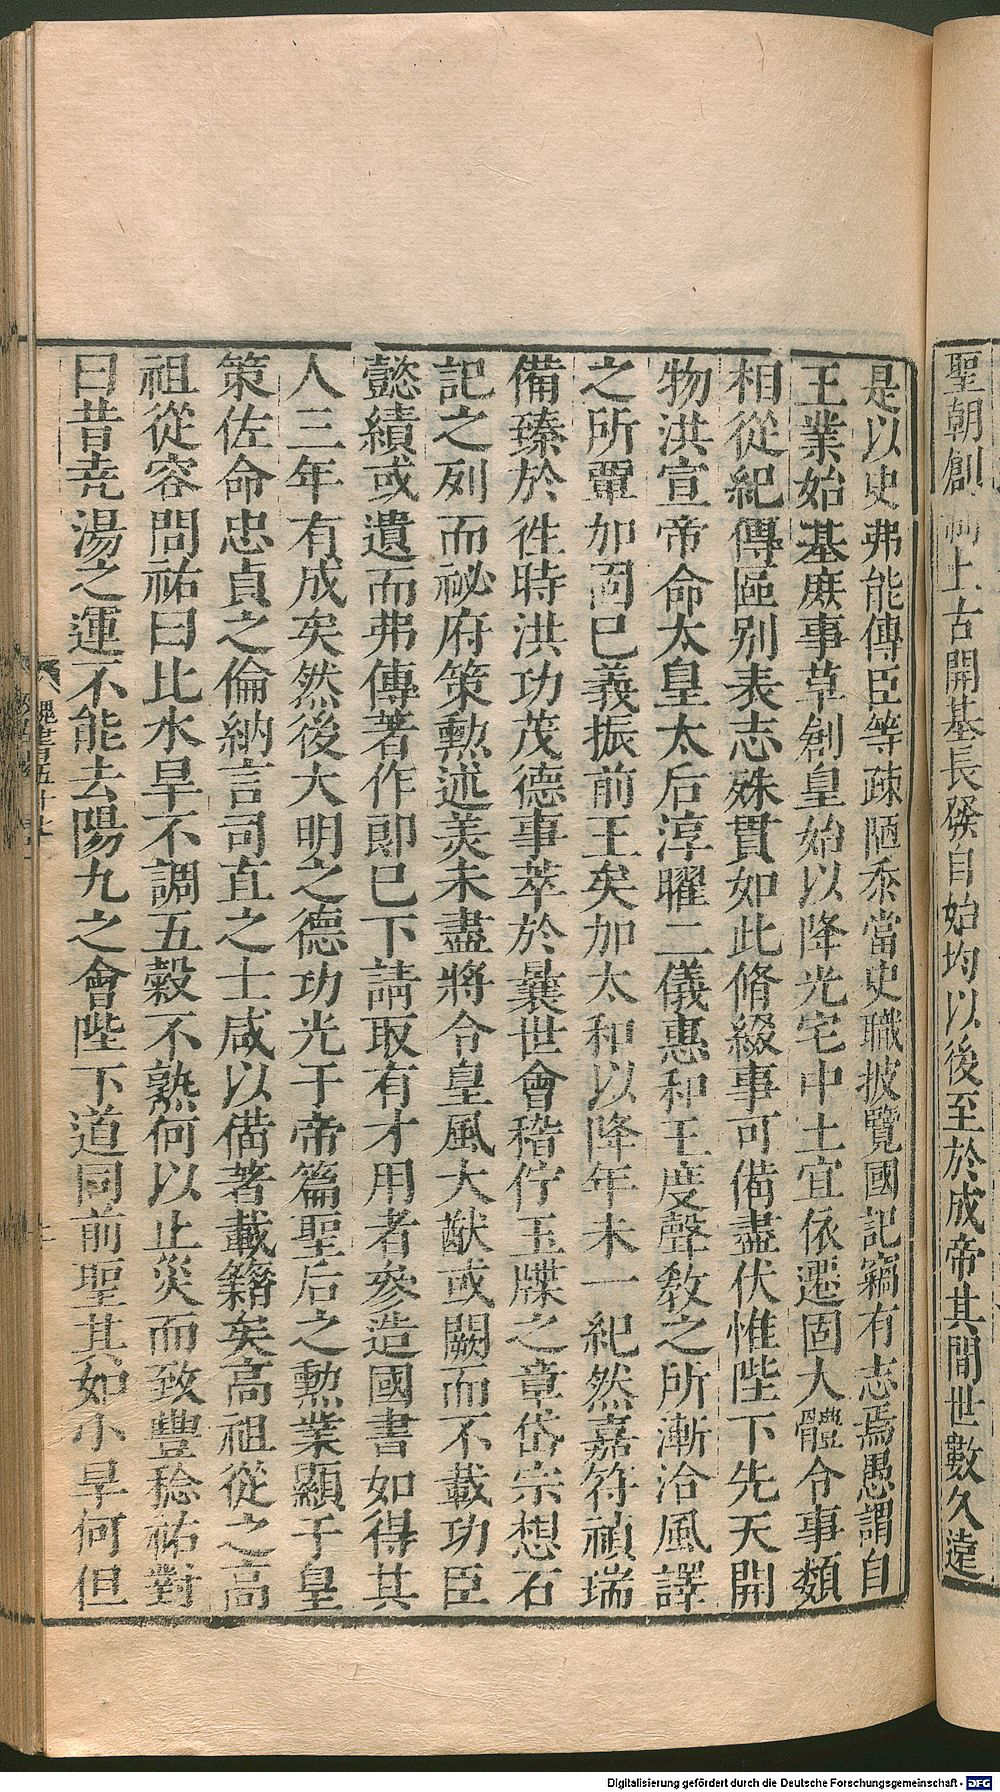 聖朝創制上古開基長發自始均以後至於成帝其間世數久遠
是以史弗能傳臣等疎陋忝當史職披覽國記竊有志焉愚謂自
王業始基庶事草創皇始以降光宅中土宜依遷固大體令事類
相從紀傳區别表志殊貫如此脩綴事可備盡伏惟陛下先天開
物洪宣帝命太皇太后淳曜二儀惠和王度聲敎之所漸洽風譯
之所覃加固已義振前王矣加太和以降年未一紀然嘉符禎瑞
備臻於徃時洪功茂德事萃於曩世會稽佇玉牒之章岱宗想石
記之列而祕府策勲述美未盡將令皇風大猷或闕而不載功臣
懿績或遺而弗傳著作郎已下請取有才用者參造國書如得其
人三年有成矣然後大明之德功光于帝篇聖后之勲業顯于皇
策佐命忠貞之倫納言司直之士咸以備著載籍矣高祖從之高
祖從容問祐曰比水旱不調五穀不熟何以止災而致豐稔祐對
曰昔堯湯之運不能去陽九之會陛下道同前聖其如小旱何但
魏書五十七
Digitalisierung gefördert durch die Deutsche Forschungsgemeinschaft - DFG